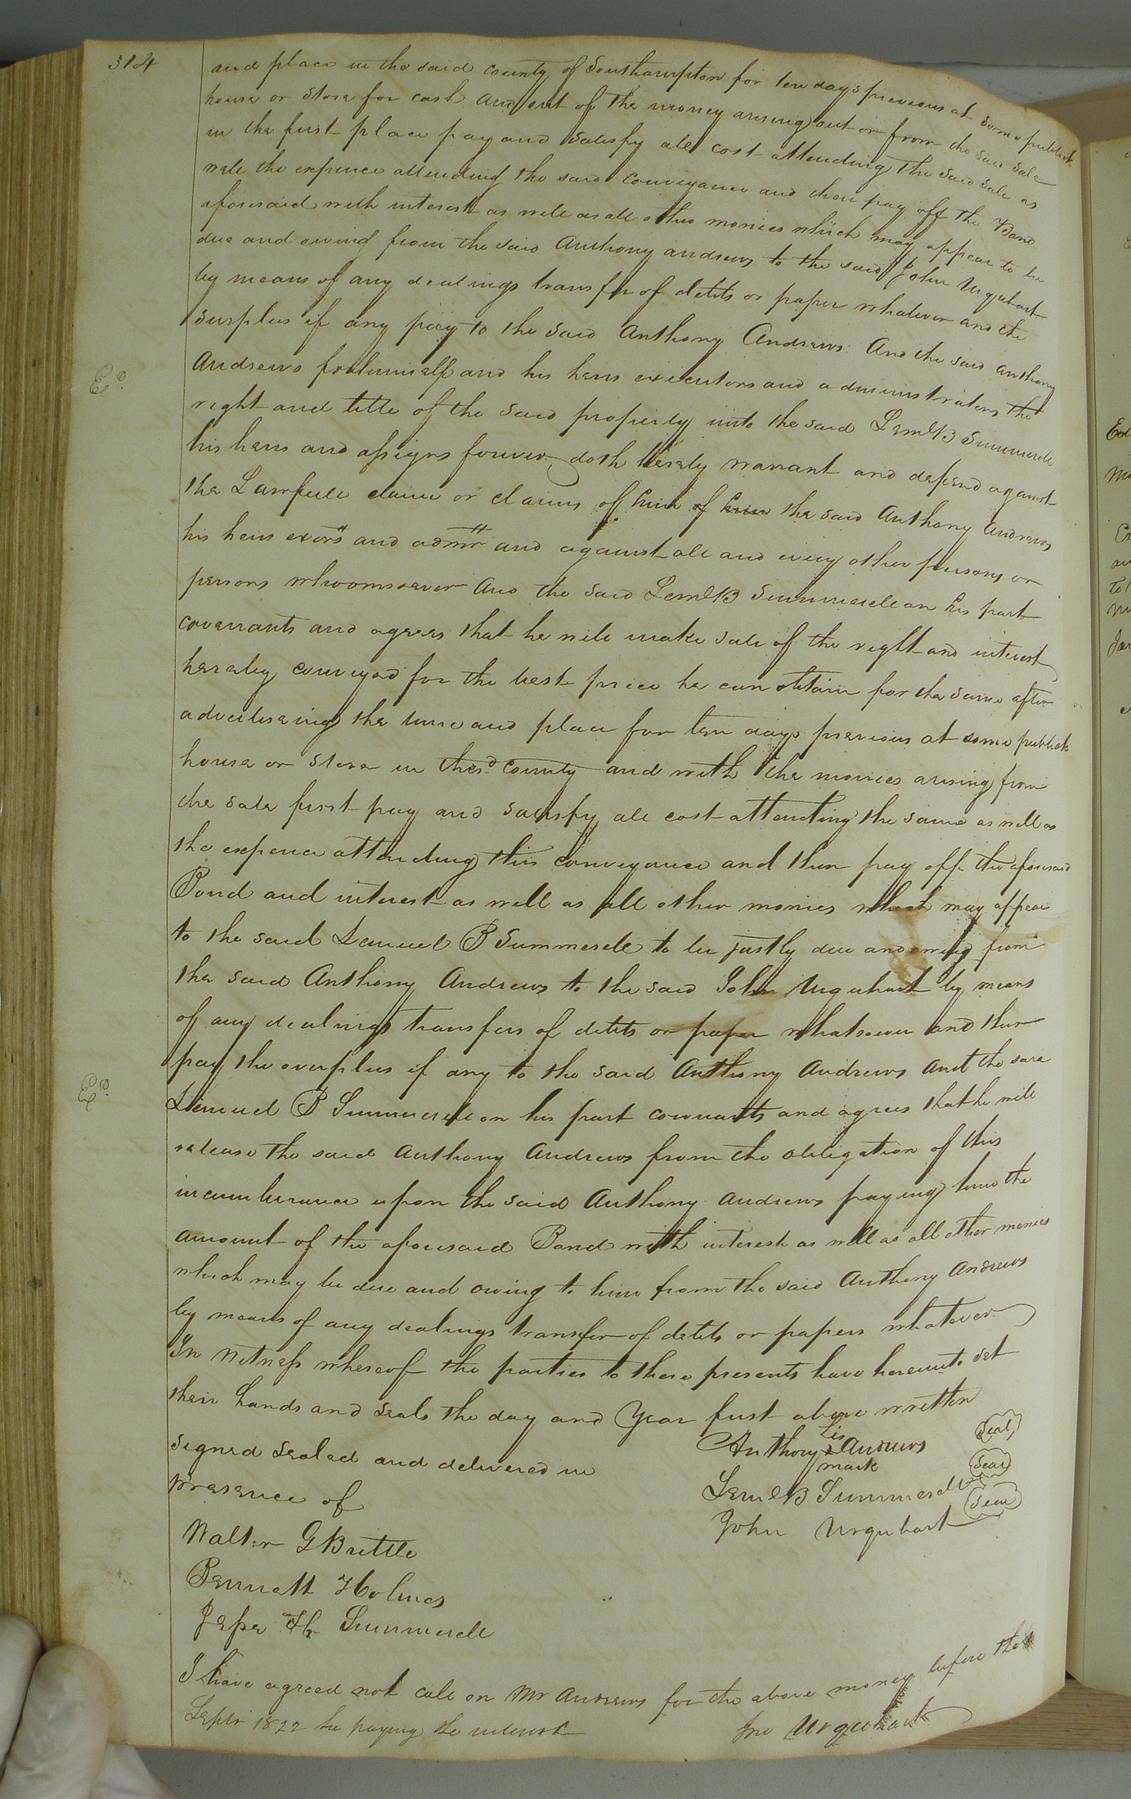 314
and place in the said county of Southampton for ten days previous at some publick
house or Store for cash and out of the money arising out or from the said sale
in the first place pay and satisfy all cost attending the said sale as
well the expence attending the said conveyance and then pay off the Bond
aforesaid with interest as well as all other monies which may appear to be
due and owing from the said Anthony Andrews to the said John Urquhart
by means of any dealings transfer of debts or paper whatever and the
surplus if any pay to the said Anthony Andrews And the said Anthony
Andrews for himself and his heirs executors and administrators the
right and title of the said property unto the said Leml B Summerell
his heirs and assigns forever doth hereby warrant and defend against
the Lawfull claim or claims of him of him the said Anthony Andrews
his heirs exors and admrs and against all and every other persons or
persons whoomsoever And the said Leml B Summerell on his part
covenants and agrees that he will make sale of the right and interest
hereby conveyed for the best price he can obtain for the same after
advertiseing the time and place for ten days previous at some publick
house or Store in the sd County and with the monies arising from
the sale first pay and satisfy all cost attending the same as well as
the expence attending this conveyance and then pay off the aforesaid
Bond and interest as well as all other monies which may appear
to the said Lemuel B Summerell to be justly due and owing from
the said Anthony Andrews to the said John Urquhart by means
of any dealings transfers of debts or paper whatsoever and then
pay the overplus if any to the said Anthony Andrews and the said
Lemuel B Summerell on his part covenants and agrees that he will
release the said Anthony Andrews from the obligation of this
incumbrance upon the said Anthony Andrews paying him the
amount of the aforesaid Bond with interest as well as all other monies
which may be due and owing to him from the said Anthony Andrews
by means of any dealings transfer of debts or papers whatever
In Witness whereof the parties to these presents have hereunto set
their hands and seals the day and Year first above written
Signed Sealed and delivered in
presence of
Walter G Brittle
Bennett Holmes
Jesse H Summerell
his
Anthony x Andrews Seal
mark
Leml B Summerell Seal
John Urquhart Seal
I have agreed not call on Mr Andrews for the above money before the
Septr 1822 he paying the interest
Jno Urquhart